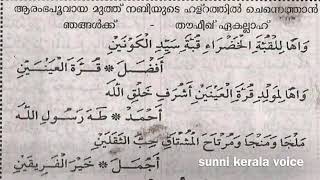 ആരംഭപൂവായ മുത്ത് നബിയുടെ ഹള്റത്തിൽ ചെന്നെത്താൻ
ഞങ്ങൾക്ക് - തൗഫീഖ് ഏകല്ലാഹ്
وَاهَا لِلْقُبَّةِ الْخَضْرَاءِ قُبَّةِ سَيِّدِ الْكَوْنَيْنِ
أَفْضَلْ - قُرَّةَ الْعَيْنَيْنِ
وَاهَا لِمَوْلِدِ قُرَّةِ الْعَيْنَيْنِ أَشْرَفِ خَلْقِ اللّٰهِ
أَحْمَدْ * طٰهَ رَسُولَ اللّٰهِ
مَلْجَا وَمَنْجَا وَمُرْتَاحَ الْمُشْتَاقِي حِبِّ الثَّقَلَيْنِ
أَجْمَلْ * خَيْرَ الْفَرِيقَيْنِ
sunni kerala voice